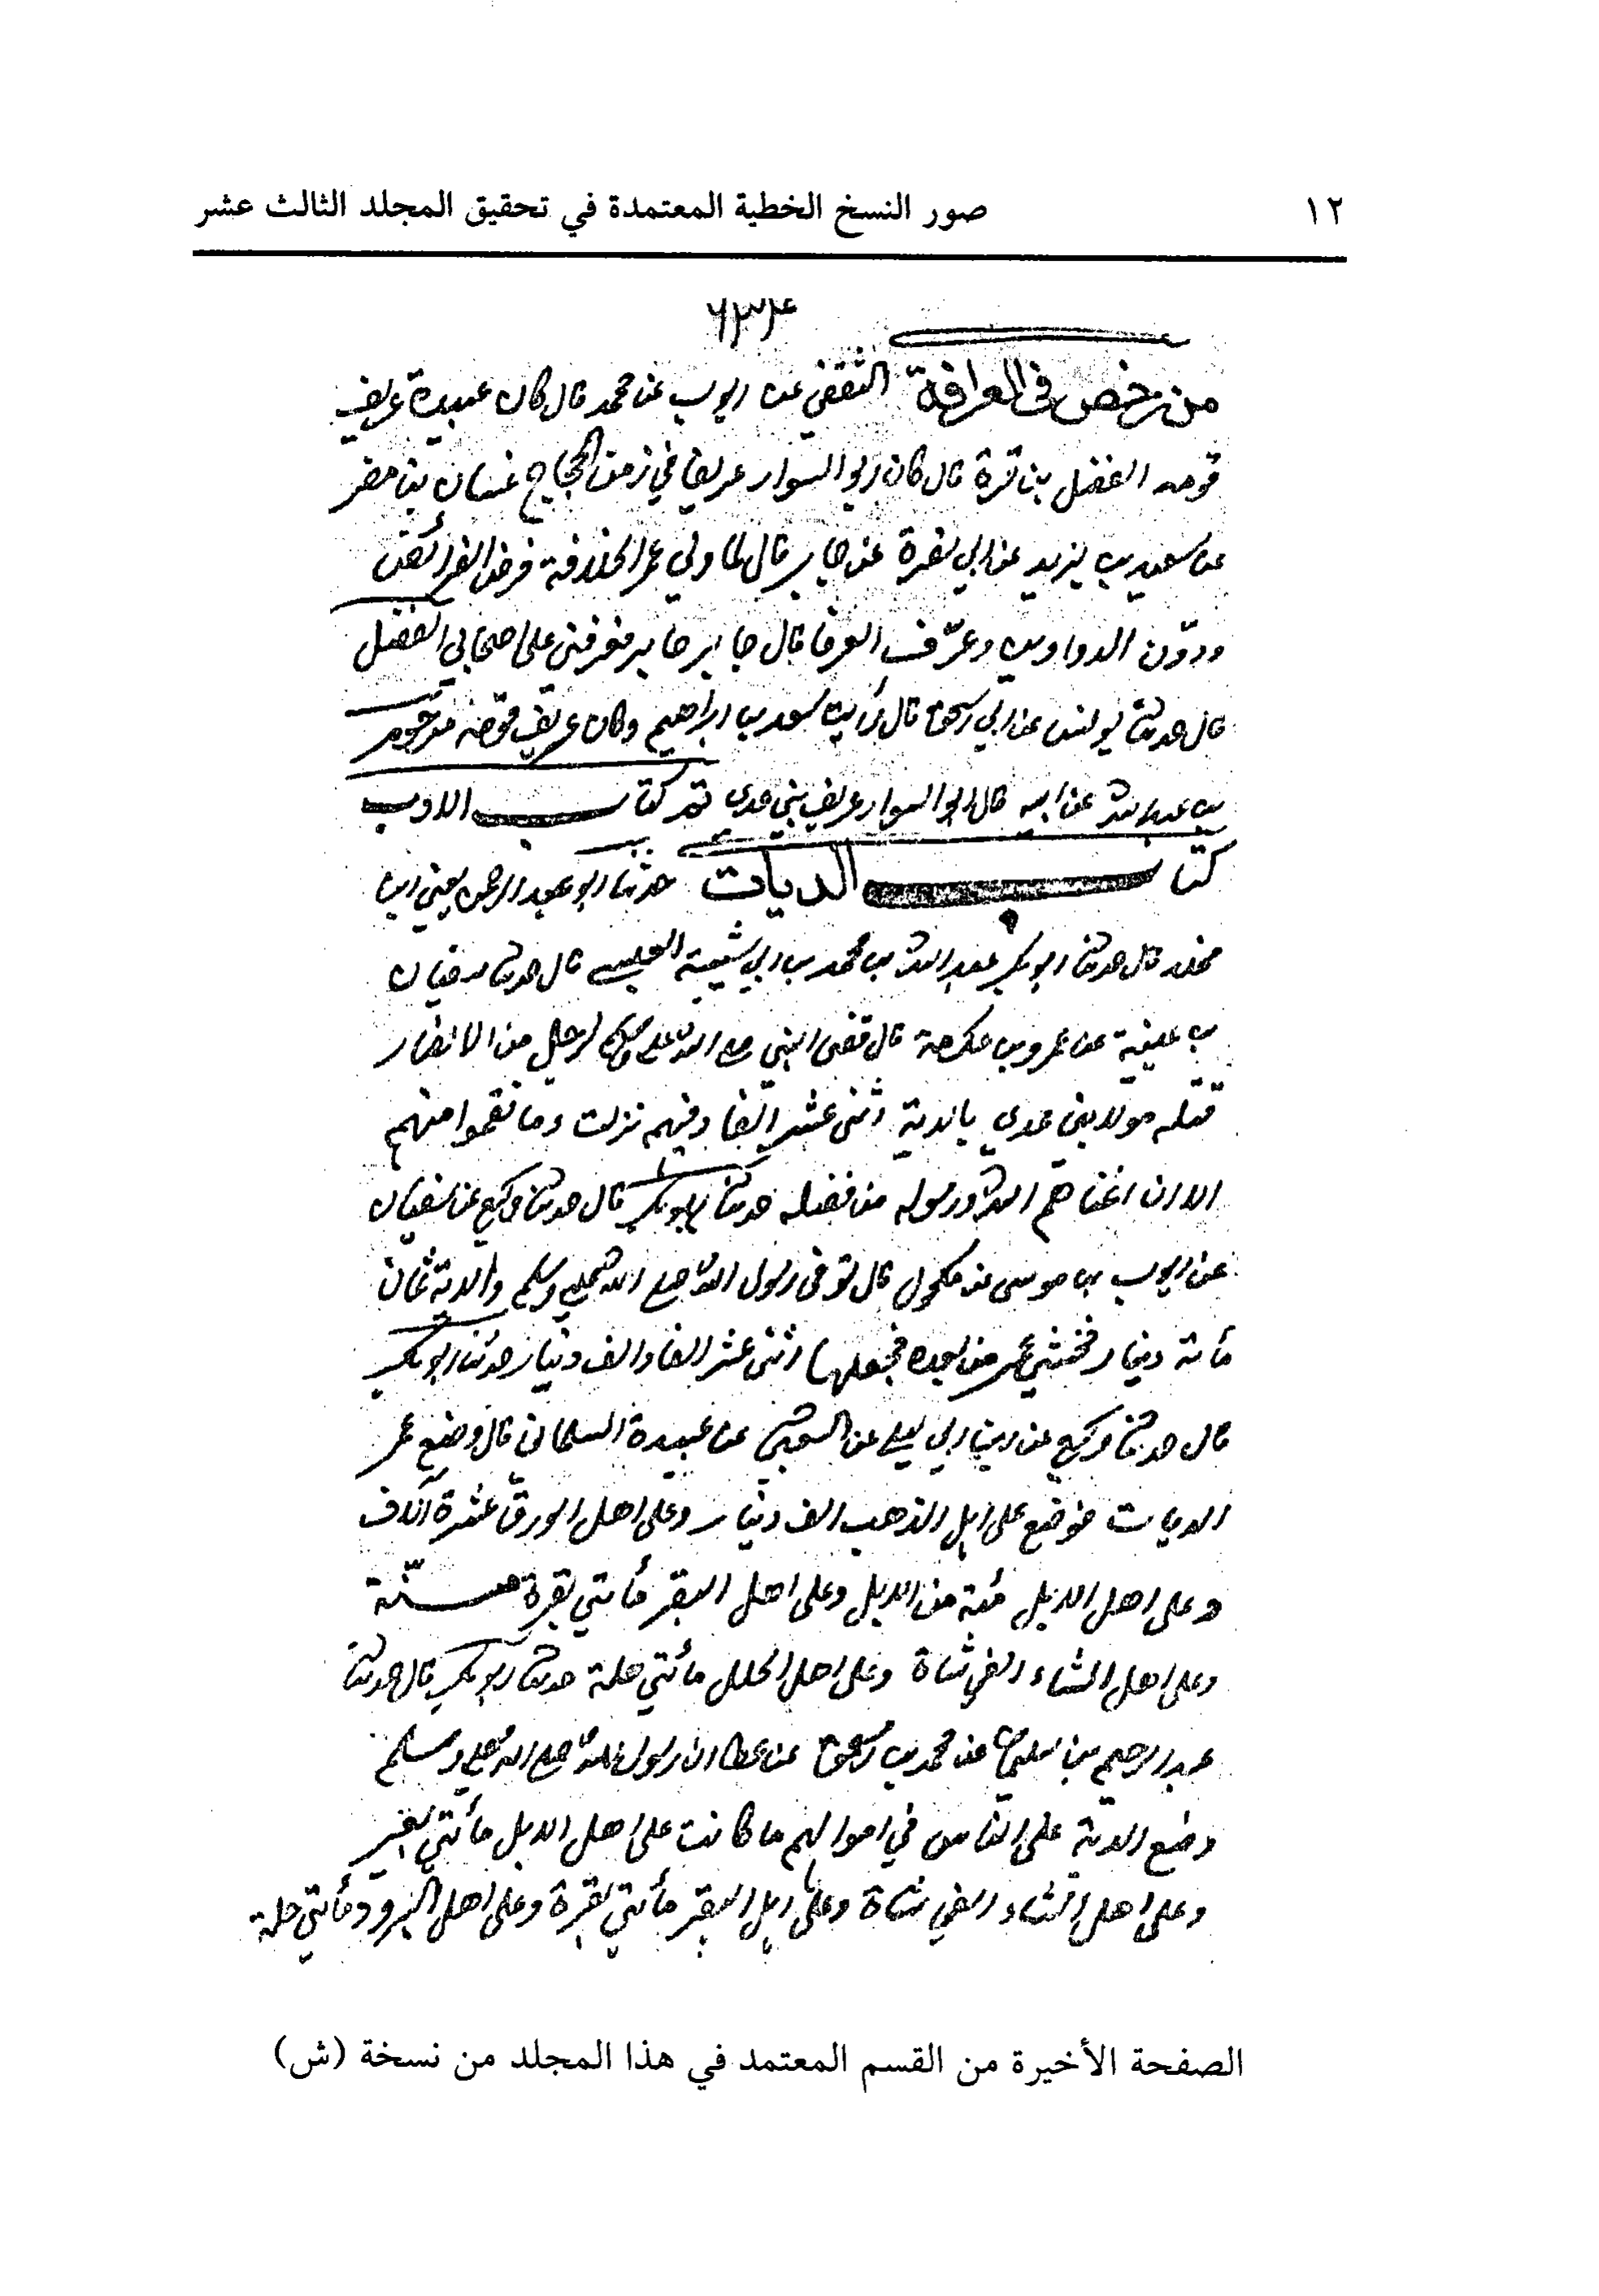 ١٢
صور النسخ الخطية المعتمدة في تحقيق المجلد الثالث عشر
٦٣٤
من رخص في العرافة الثقفي عن ايوب عن محمد قال كان عبيدة عريف
قومه الفضل بن قرة قال كان ابو السوار عريفا في زمن الحجاج غسان بن مضر
عن سعيد بن يزيد عن ابي نضرة عن جابر قال لما ولي عمر الخلافة فرض الفرائض
ودوّن الدواوين وعرّف العرفا قال جابر فعرفني على اصحابي الفضل
قال حدثنا يونس عن ابي اسحق قال رأيت سعد بن ابراهيم وكان عريف قومه
بن عبد الله عن ابيه قال ابو السوار عريف بني عدي تم كتاب الادب
كتاب الديات حدثنا ابو عبد الرحمن يعني ابن
مخلد قال حدثنا ابو بكر عبد الله بن محمد بن ابي شيبة العبسي قال حدثنا سفيان
بن عيينة عن عمرو عن عكرمة قال قضى النبي صلى الله عليه وسلم لرجل من الانصار
قتله مولا بني عدي بالدية اثنى عشر الفا وفيهم نزلت وما نقموا منهم
الا ان اغناهم الله ورسوله من فضله حدثنا ابو بكر قال حدثنا وكيع عن سفيان
عن ايوب بن موسى عن مكحول قال توفى رسول الله صلى الله عليه وسلم والدية ثمان
مأة دينار فخشي عمر من بعده فجعلها اثنى عشر الفا والف دينار حدثنا ابو بكر
قال حدثنا وكيع عن ابن ابي ليلى عن الشعبي عن عبيدة السلمانى قال وضع عمر
الديات فوضع على اهل الذهب الف دينار وعلى اهل الورق عشرة آلاف
وعلى اهل الابل مئة من الابل وعلى اهل البقر مأتي بقرة مسنّة
وعلى اهل الشاء الفي شاة وعلى اهل الحلل مأتي حلة حدثنا ابو بكر قال حدثنا
عبد الرحيم بن سليمان عن محمد بن اسحق عن عطا ان رسول الله صلى الله عليه وسلم
وضع الدية على الناس في اموالهم ما كانت على اهل الابل مأتي بعير
وعلى اهل الشاء الفي شاة وعلى اهل البقر مأتي بقرة وعلى اهل البرود مأتي حلة
الصفحة الأخيرة من القسم المعتمد في هذا المجلد من نسخة (ش)